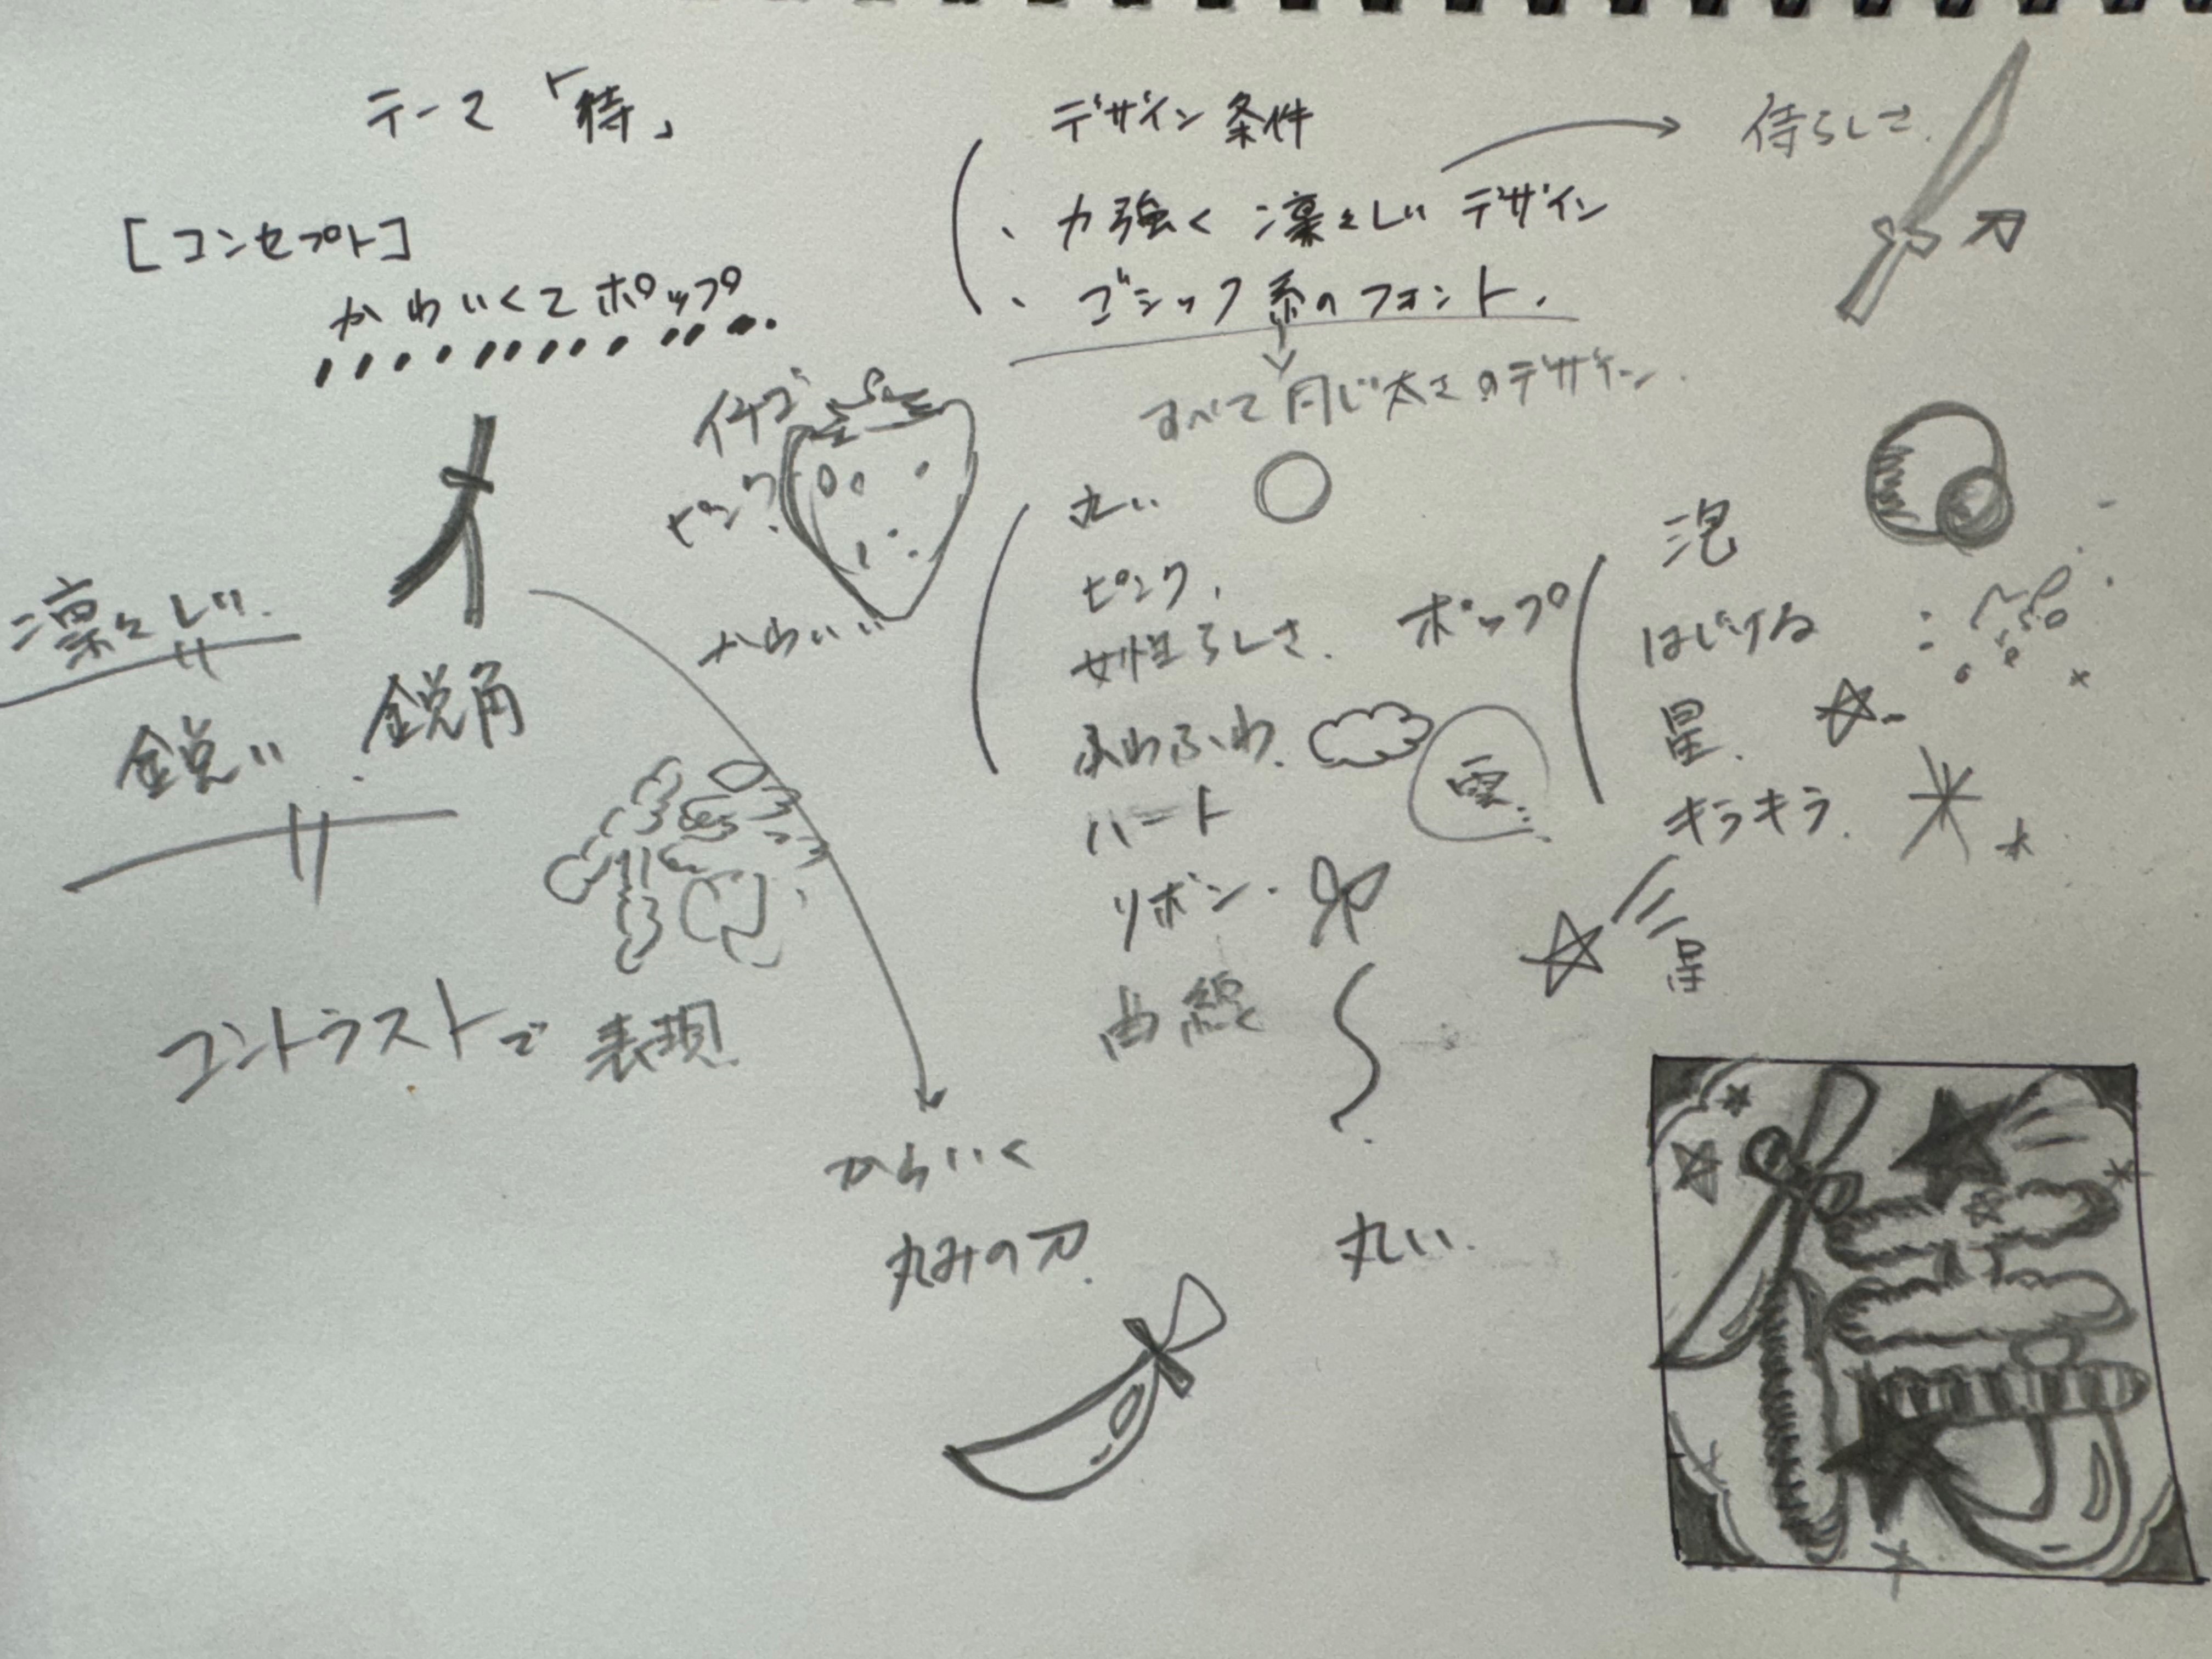 テーマ「侍」
[コンセプト]
かわいくてポップ
デザイン条件
、力強く凛々しいデザイン
、ゴシック系のフォント.
侍らしさ.
刀
すべて同じ太さのデザイン.
イチゴ
ピンク.
かわいい
凛々しい.
鋭い
鋭角
コントラストで表現.
丸い
ピンク.
女性らしさ.
ふわふわ.
ハート
リボン.
曲線
雲.
ポップ
泡
はじける
星.
キラキラ.
星
かわいく
丸みの刀.
丸い.
侍